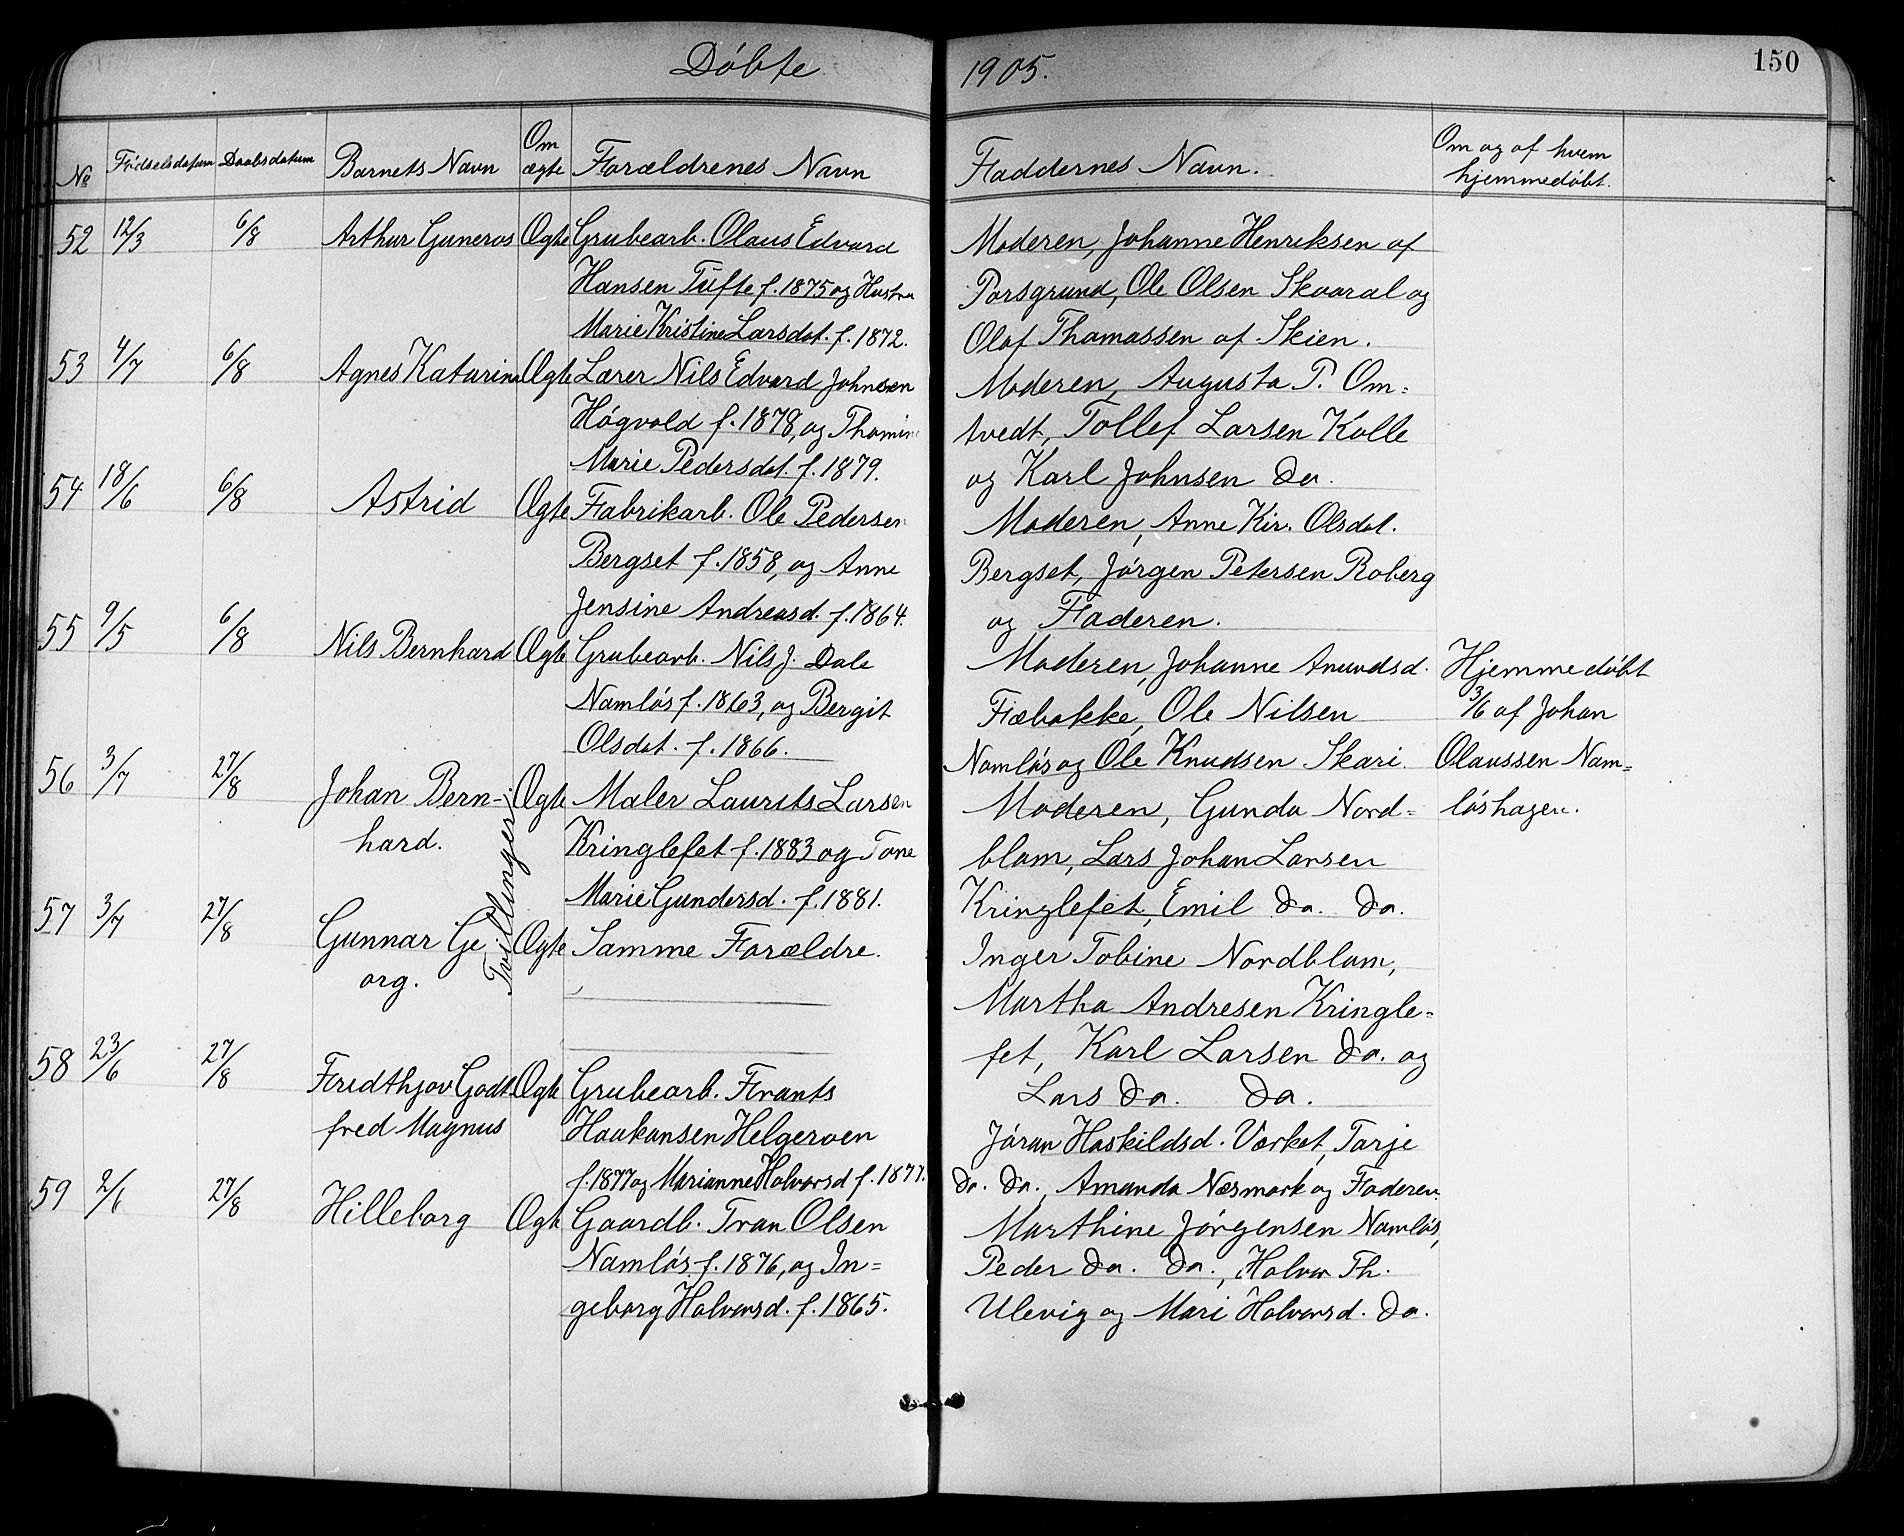 Döbte 1905. 150
№ Födselsdatum Daabsdatum Barnets Navn Om ægte Forældrenes Navn Faddernes Navn. Om og af hvem hjemmedöbt.
52 12/3 6/8 Arthur Guneros Ægte Grubearb. Olaus Edvard
Hansen Tufte f. 1875 og Hustru
Marie Kristine Larsdat. f. 1872.
Moderen, Johanne Henriksen af
Porsgrund, Ole Olsen Skaaral og
Olaf Thomassen af Skien.
53 4/7 6/8 Agnes Katarina Ægte Lærer Nils Edvard Johnsen
Högvold f. 1878, og Thomine
Marie Pedersdat. f. 1879.
Moderen, Augusta P. Om=
tvedt, Tollef Larsen Kolle
og Karl Johnsen do.
54 18/6 6/8 Astrid Ægte Fabrikarb. Ole Pedersen
Bergset f. 1858, og Anne
Jensine Andreasd. f. 1864.
Moderen, Anne Kir. Olsdat.
Bergset, Jörgen Petersen Roberg
og Faderen.
55 9/5 6/8 Nils Bernhard Ægte Grubearb. Nils J. Dale
Namlös f. 1863, og Bergit
Olsdat. f. 1866.
Moderen, Johanne Anundsd.
Fiæbakke, Ole Nilsen
Namlös og Ole Knudsen Skari.
Hjemmedöbt
3/6 af Johan
Olaussen Nam=
löshagen.
56 3/7 27/8 Johan Bern-
hard.
Tvillinger
Ægte Maler Laurits Larsen
Kringlefet f. 1883 og Tone
Marie Gundersd. f. 1881.
Moderen, Gunda Nord=
blom, Lars Johan Larsen
Kringlefet, Emil do. do.
57 3/7 27/8 Gunnar Ge
org.
Ægte Samme Forældre.
Inger Tobine Nordblom,
Martha Andresen Kringle=
fet, Karl Larsen do. og
Lars do. do.
58 23/6 27/8 Fridthjov Godt
fred Magnus
Ægte Grubearb. Frants
Haakonsen Helgeroen
f. 1877 og Marianne Halvorsd f. 1877.
Jöran Haskildsd. Værket, Tarje
do. do., Amanda Næsmark og Faderen.
59 2/6 27/8 Hilleborg Ægte Gaardb. Tron Olsen
Namlös f. 1876, og In=
geborg Halvorsd. f. 1865.
Marthine Jörgensen Namlös,
Peder do. do., Halvor Th.
Ulevig og Mari Halvorsd. do.